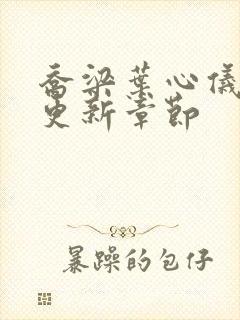 乔梁葉心儀
更新章節
暴躁的包仔